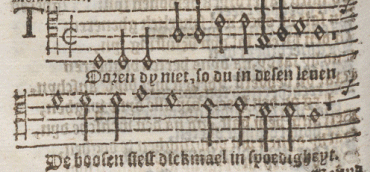 T
Oozen dy niet, so du in desen leuen
De boosen siest dickmael in spoedigheyt.